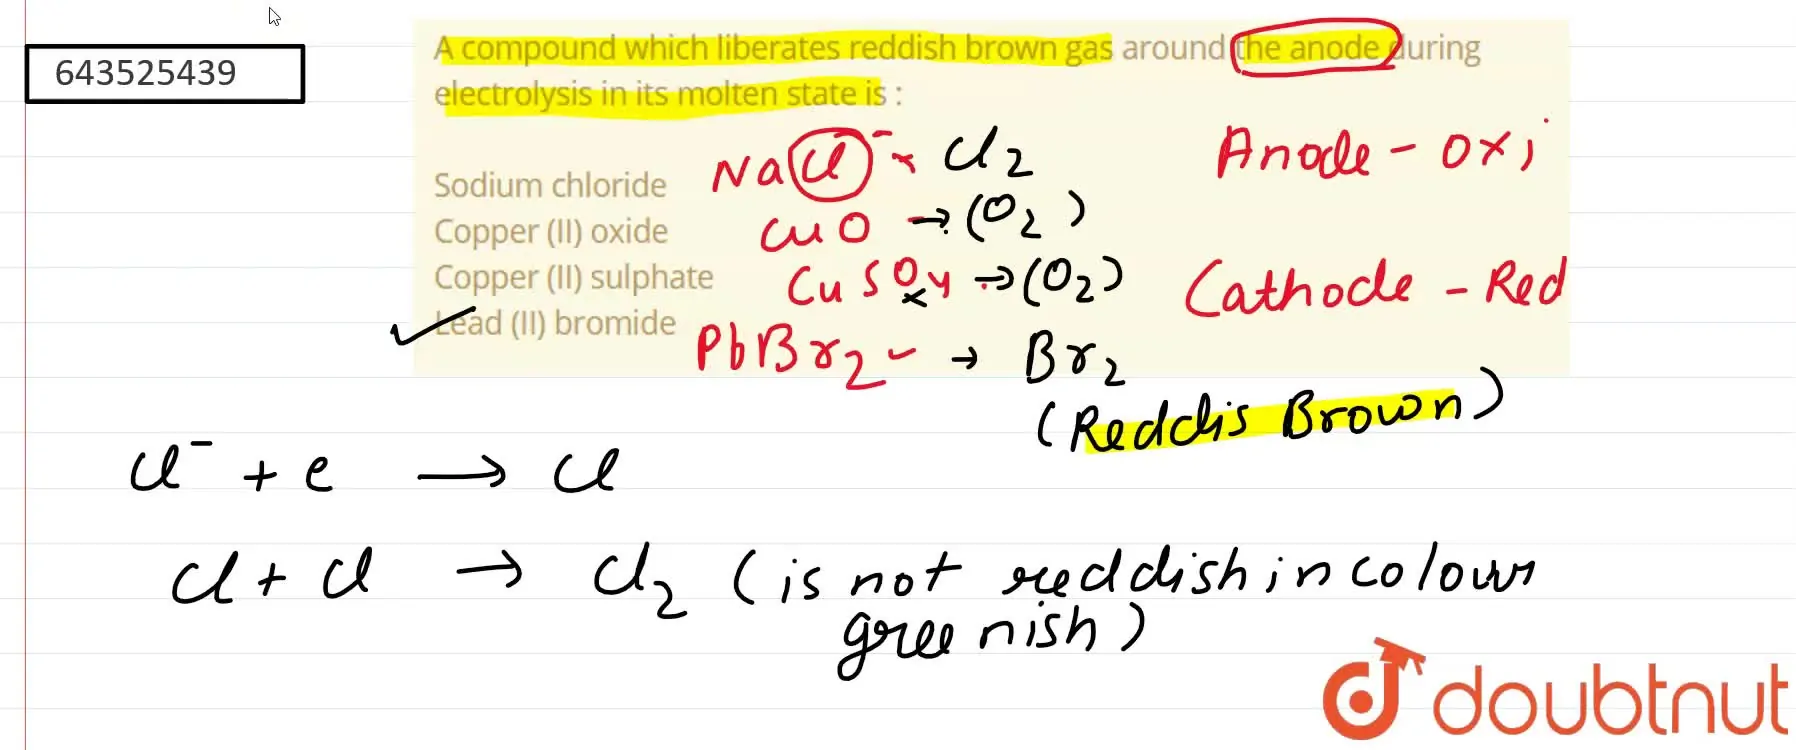 643525439
A compound which liberates reddish brown gas around the anode during
electrolysis in its molten state is :
Sodium chloride
Copper (II) oxide
Copper (II) sulphate
Lead (II) bromide
NaCl⁻ × Cl2
CuO → (O2)
CuSO4 → (O2)
PbBr2 → Br2
(Reddis Brown)
Anode - oxi
Cathode - Red
Cl⁻ + e → Cl
Cl + Cl → Cl2 (is not reddish in colour
greenish)
doubtnut